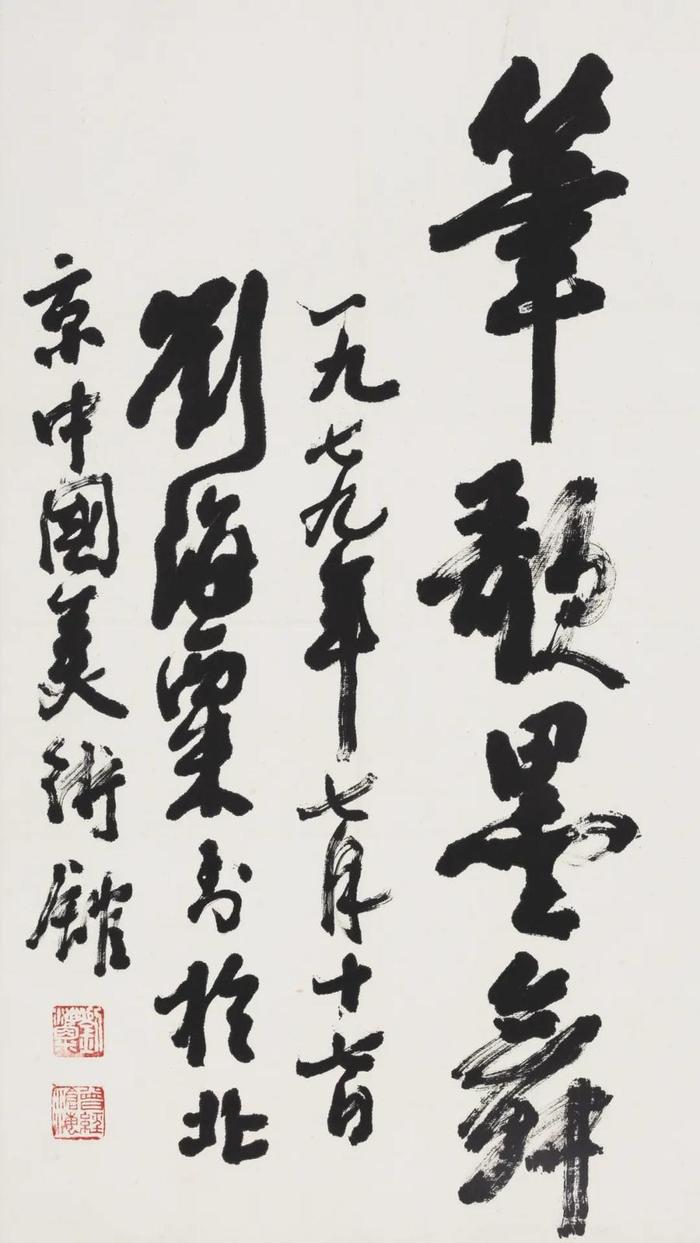 筆歌墨舞
一九七九年七月十七日
劉海粟书於北
京中國美術館
劉海粟
曾經滄海